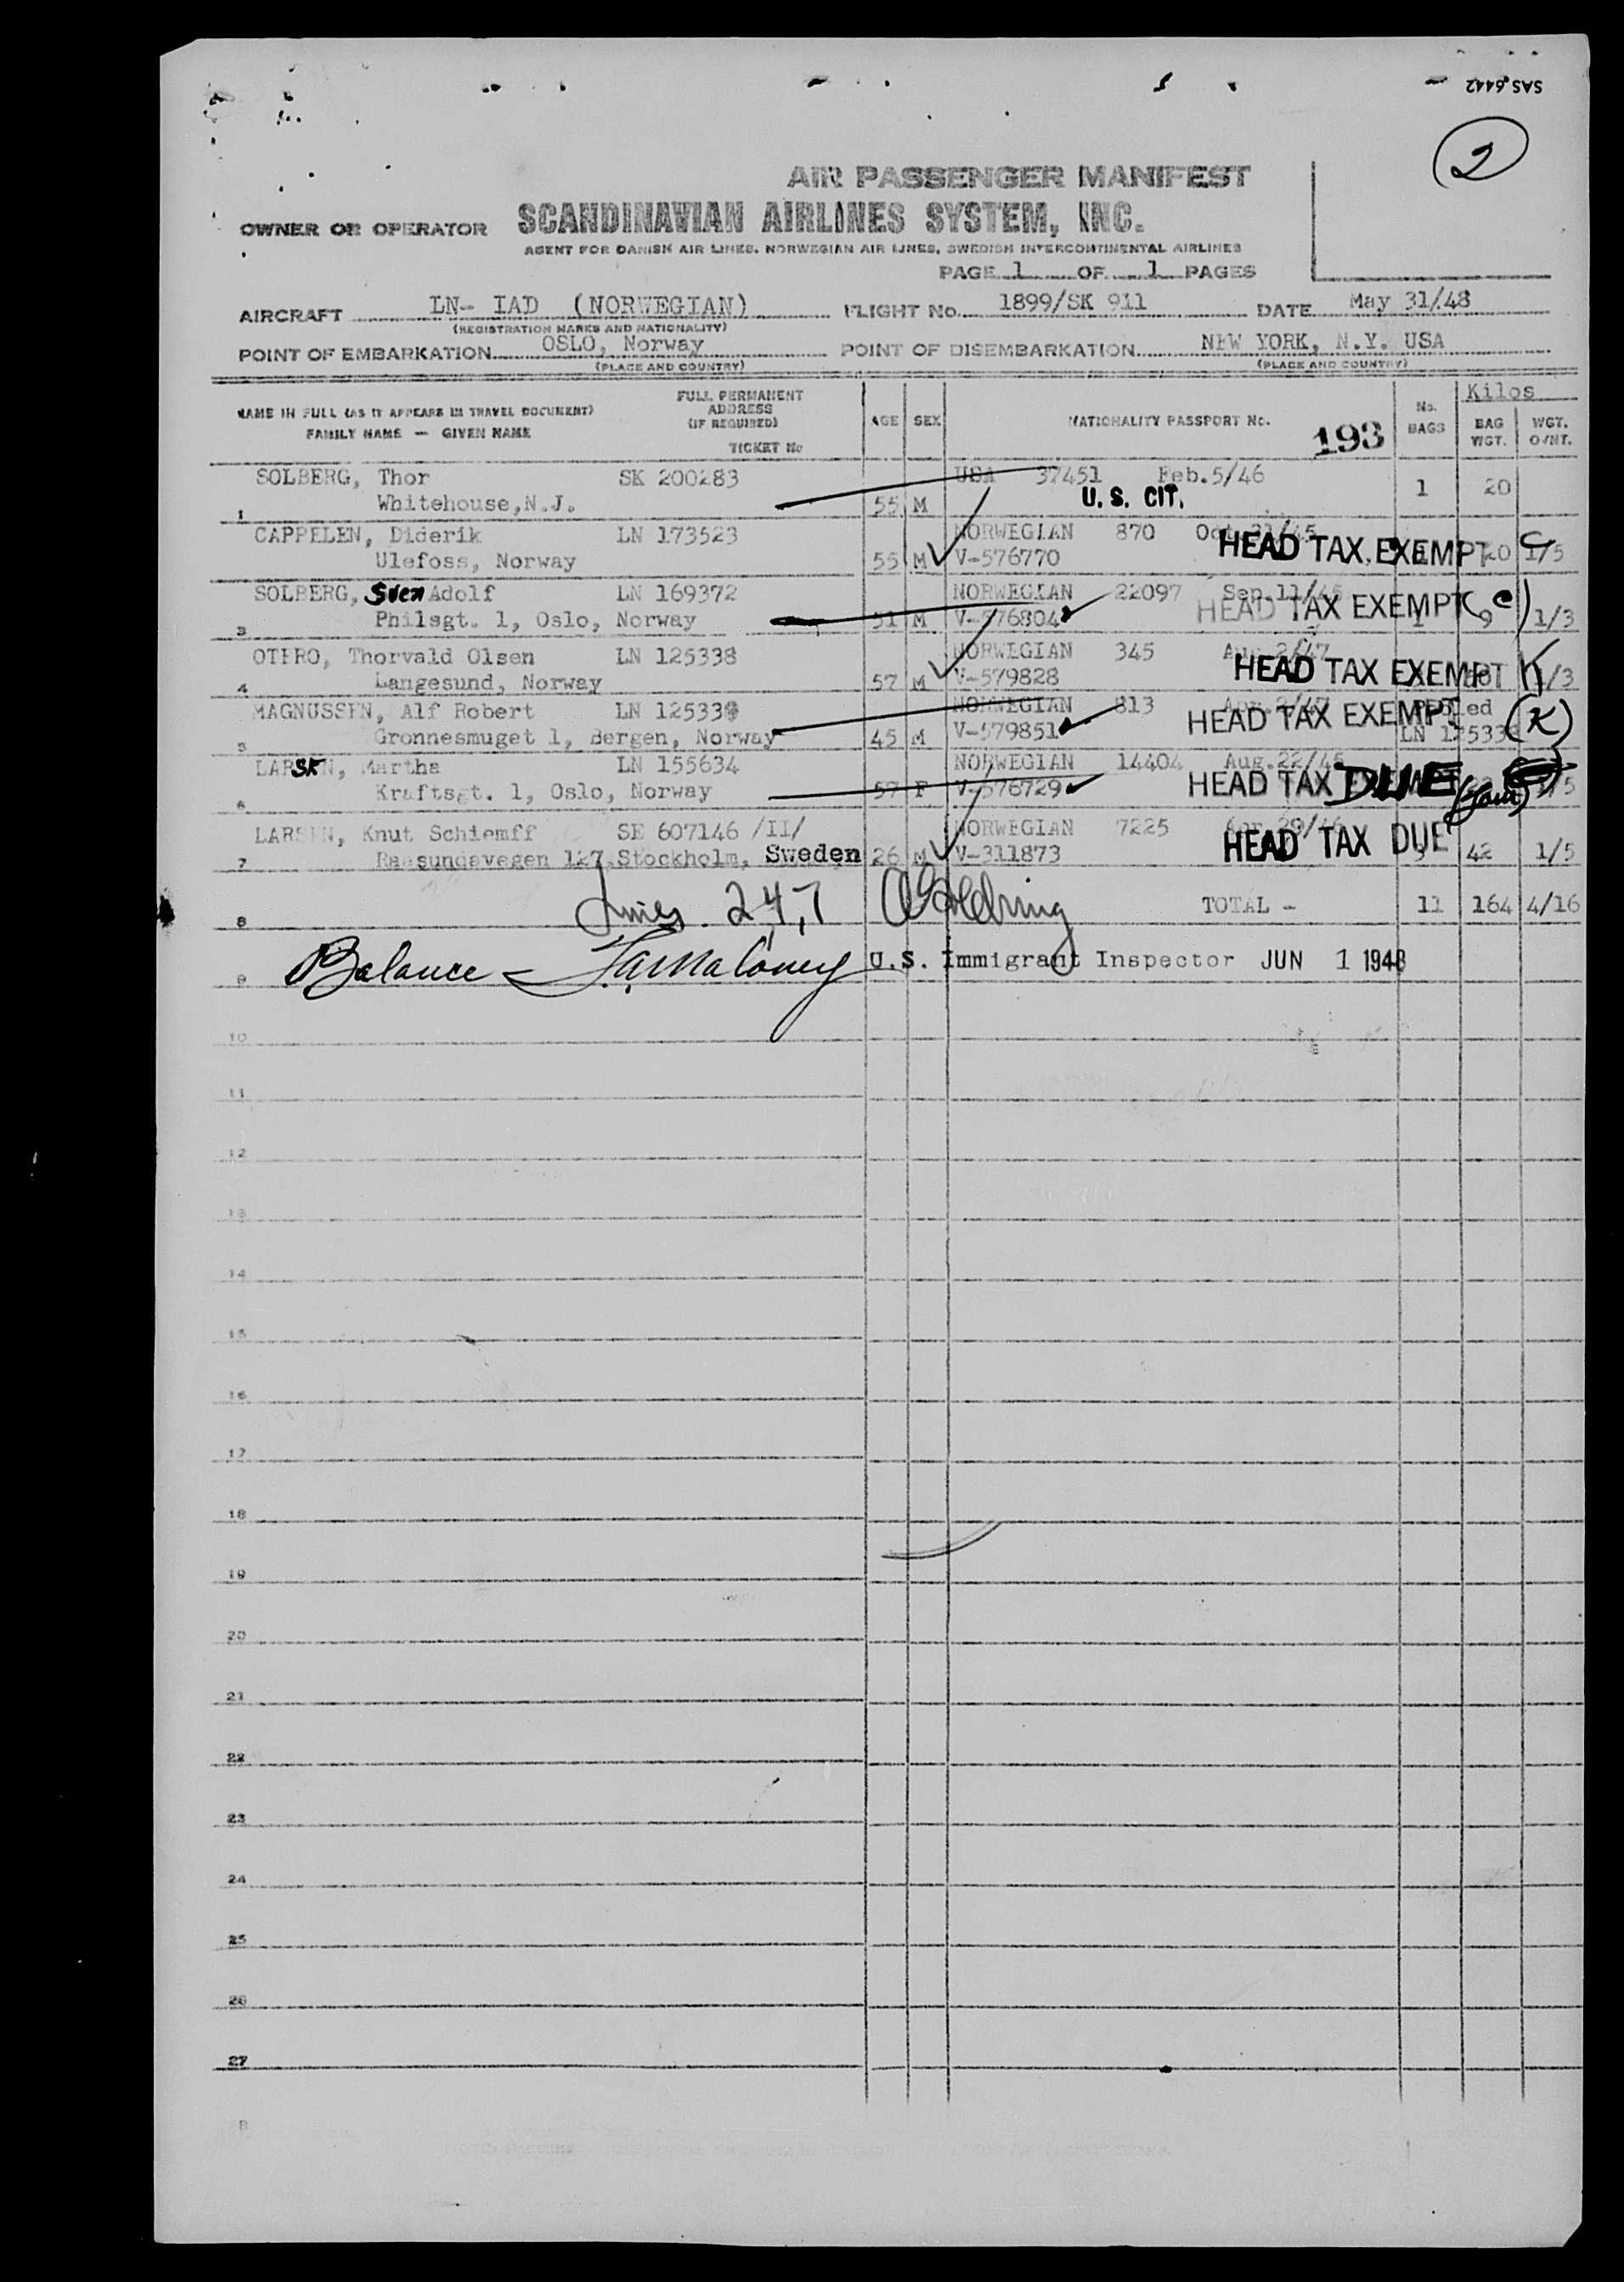 SAS 6442
2
AIR PASSENGER MANIFEST
OWNER OR OPERATOR SCANDINAVIAN AIRLINES SYSTEM, INC.
AGENT FOR DANISH AIR LINES, NORWEGIAN AIR LINES, SWEDISH INTERCONTINENTAL AIRLINES
PAGE 1 OF 1 PAGES
AIRCRAFT LN- IAD (NORWEGIAN) FLIGHT No. 1899/SK 911 DATE May 31/48
(REGISTRATION MARKS AND NATIONALITY)
POINT OF EMBARKATION OSLO, Norway POINT OF DISEMBARKATION NEW YORK, N.Y. USA
(PLACE AND COUNTRY) (PLACE AND COUNTRY)
NAME IN FULL (AS IT APPEARS IN TRAVEL DOCUMENT) FAMILY NAME — GIVEN NAME FULL PERMANENT ADDRESS (IF REQUIRED) TICKET No AGE SEX NATIONALITY PASSPORT No. 193 No. BAGS Kilos BAG WGT. WGT. O/NT.
SOLBERG, Thor SK 200283 USA 37451 Feb.5/46
1 Whitehouse, N.J. 55 M U. S. CIT. 1 20
CAPPELEN, Diderik LN 173523 NORWEGIAN 870
Ulefoss, Norway 55 M V-576770 HEAD TAX EXEMPT C 1/5
SOLBERG, Sven Adolf LN 169372 NORWEGIAN 22097
3 Philsgt. 1, Oslo, Norway 51 M V-576804 HEAD TAX EXEMPT (C) 1 9 1/3
OTERO, Thorvald Olsen LN 125338 NORWEGIAN 345 Aug.2/47
4 Langesund, Norway 57 M V-579828 HEAD TAX EXEMPT K 1/3
MAGNUSSEN, Alf Robert LN 125339 NORWEGIAN 813
5 Gronnesmuget 1, Bergen, Norway 45 M V-579851 HEAD TAX EXEMPT (K)
LARSEN, Martha LN 155634 NORWEGIAN 14404 Aug.22/45
6 Kraftsgt. 1, Oslo, Norway 57 F V-576729 HEAD TAX DUE
LARSEN, Knut Schiemff SE 607146 /II/ NORWEGIAN 7225
7 Raasundavegen 127, Stockholm, Sweden 26 M V-311873 HEAD TAX DUE 42 1/5
8 Lines 2,4,7 TOTAL - 11 164 4/16
9 Balance U.S. Immigrant Inspector JUN 1 1948
10
11
12
13
14
15
16
17
18
19
20
21
22
23
24
25
26
27